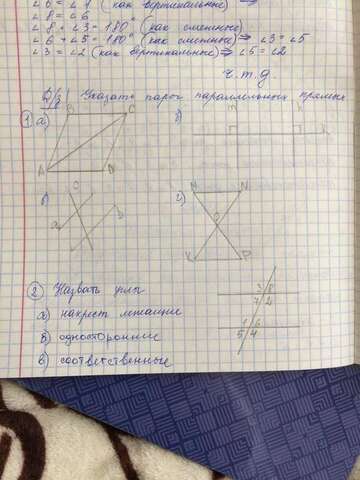 ∠6 = ∠1 (как вертикальные) ⇒
∠8 = ∠6
∠8 + ∠3 = 180° (как смежные)
∠6 + ∠5 = 180° (как смежные) ⇒ ∠3 = ∠5
∠3 = ∠2 (как вертикальные) ⇒ ∠5 = ∠2
ч.т.д.
Д/з Указать пары параллельных прямых
① а) B C б)
A D
a b c
M N
O
K P
② Назвать углы
а) накрест лежащие
б) односторонние
в) соответственные
3 8
7 2
1 6
5 4